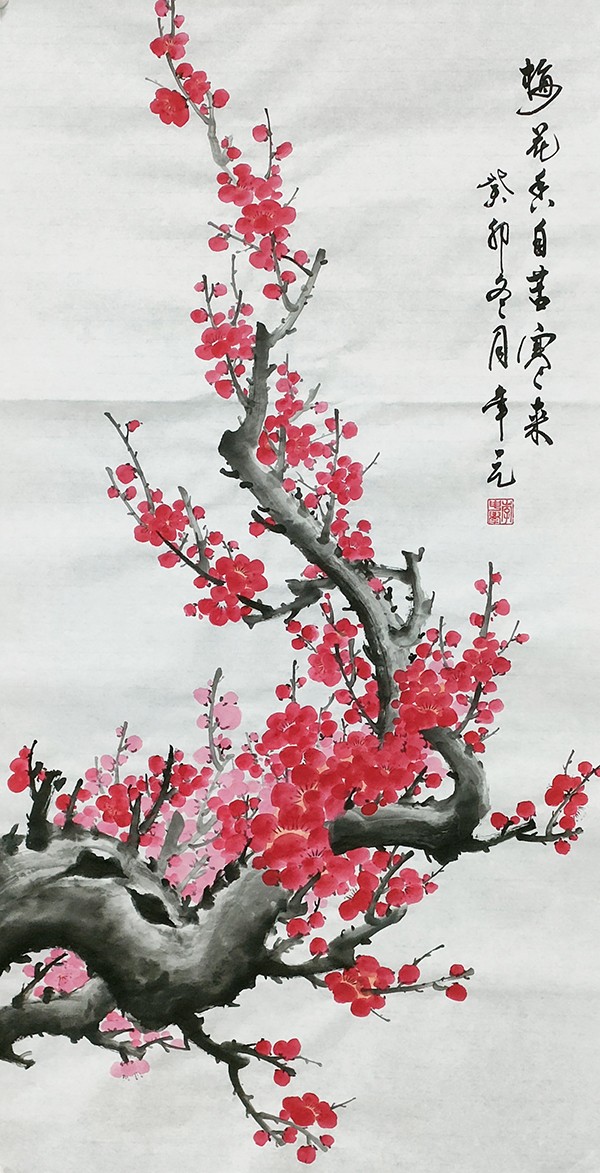 梅花香自苦寒来
癸卯冬月幸元